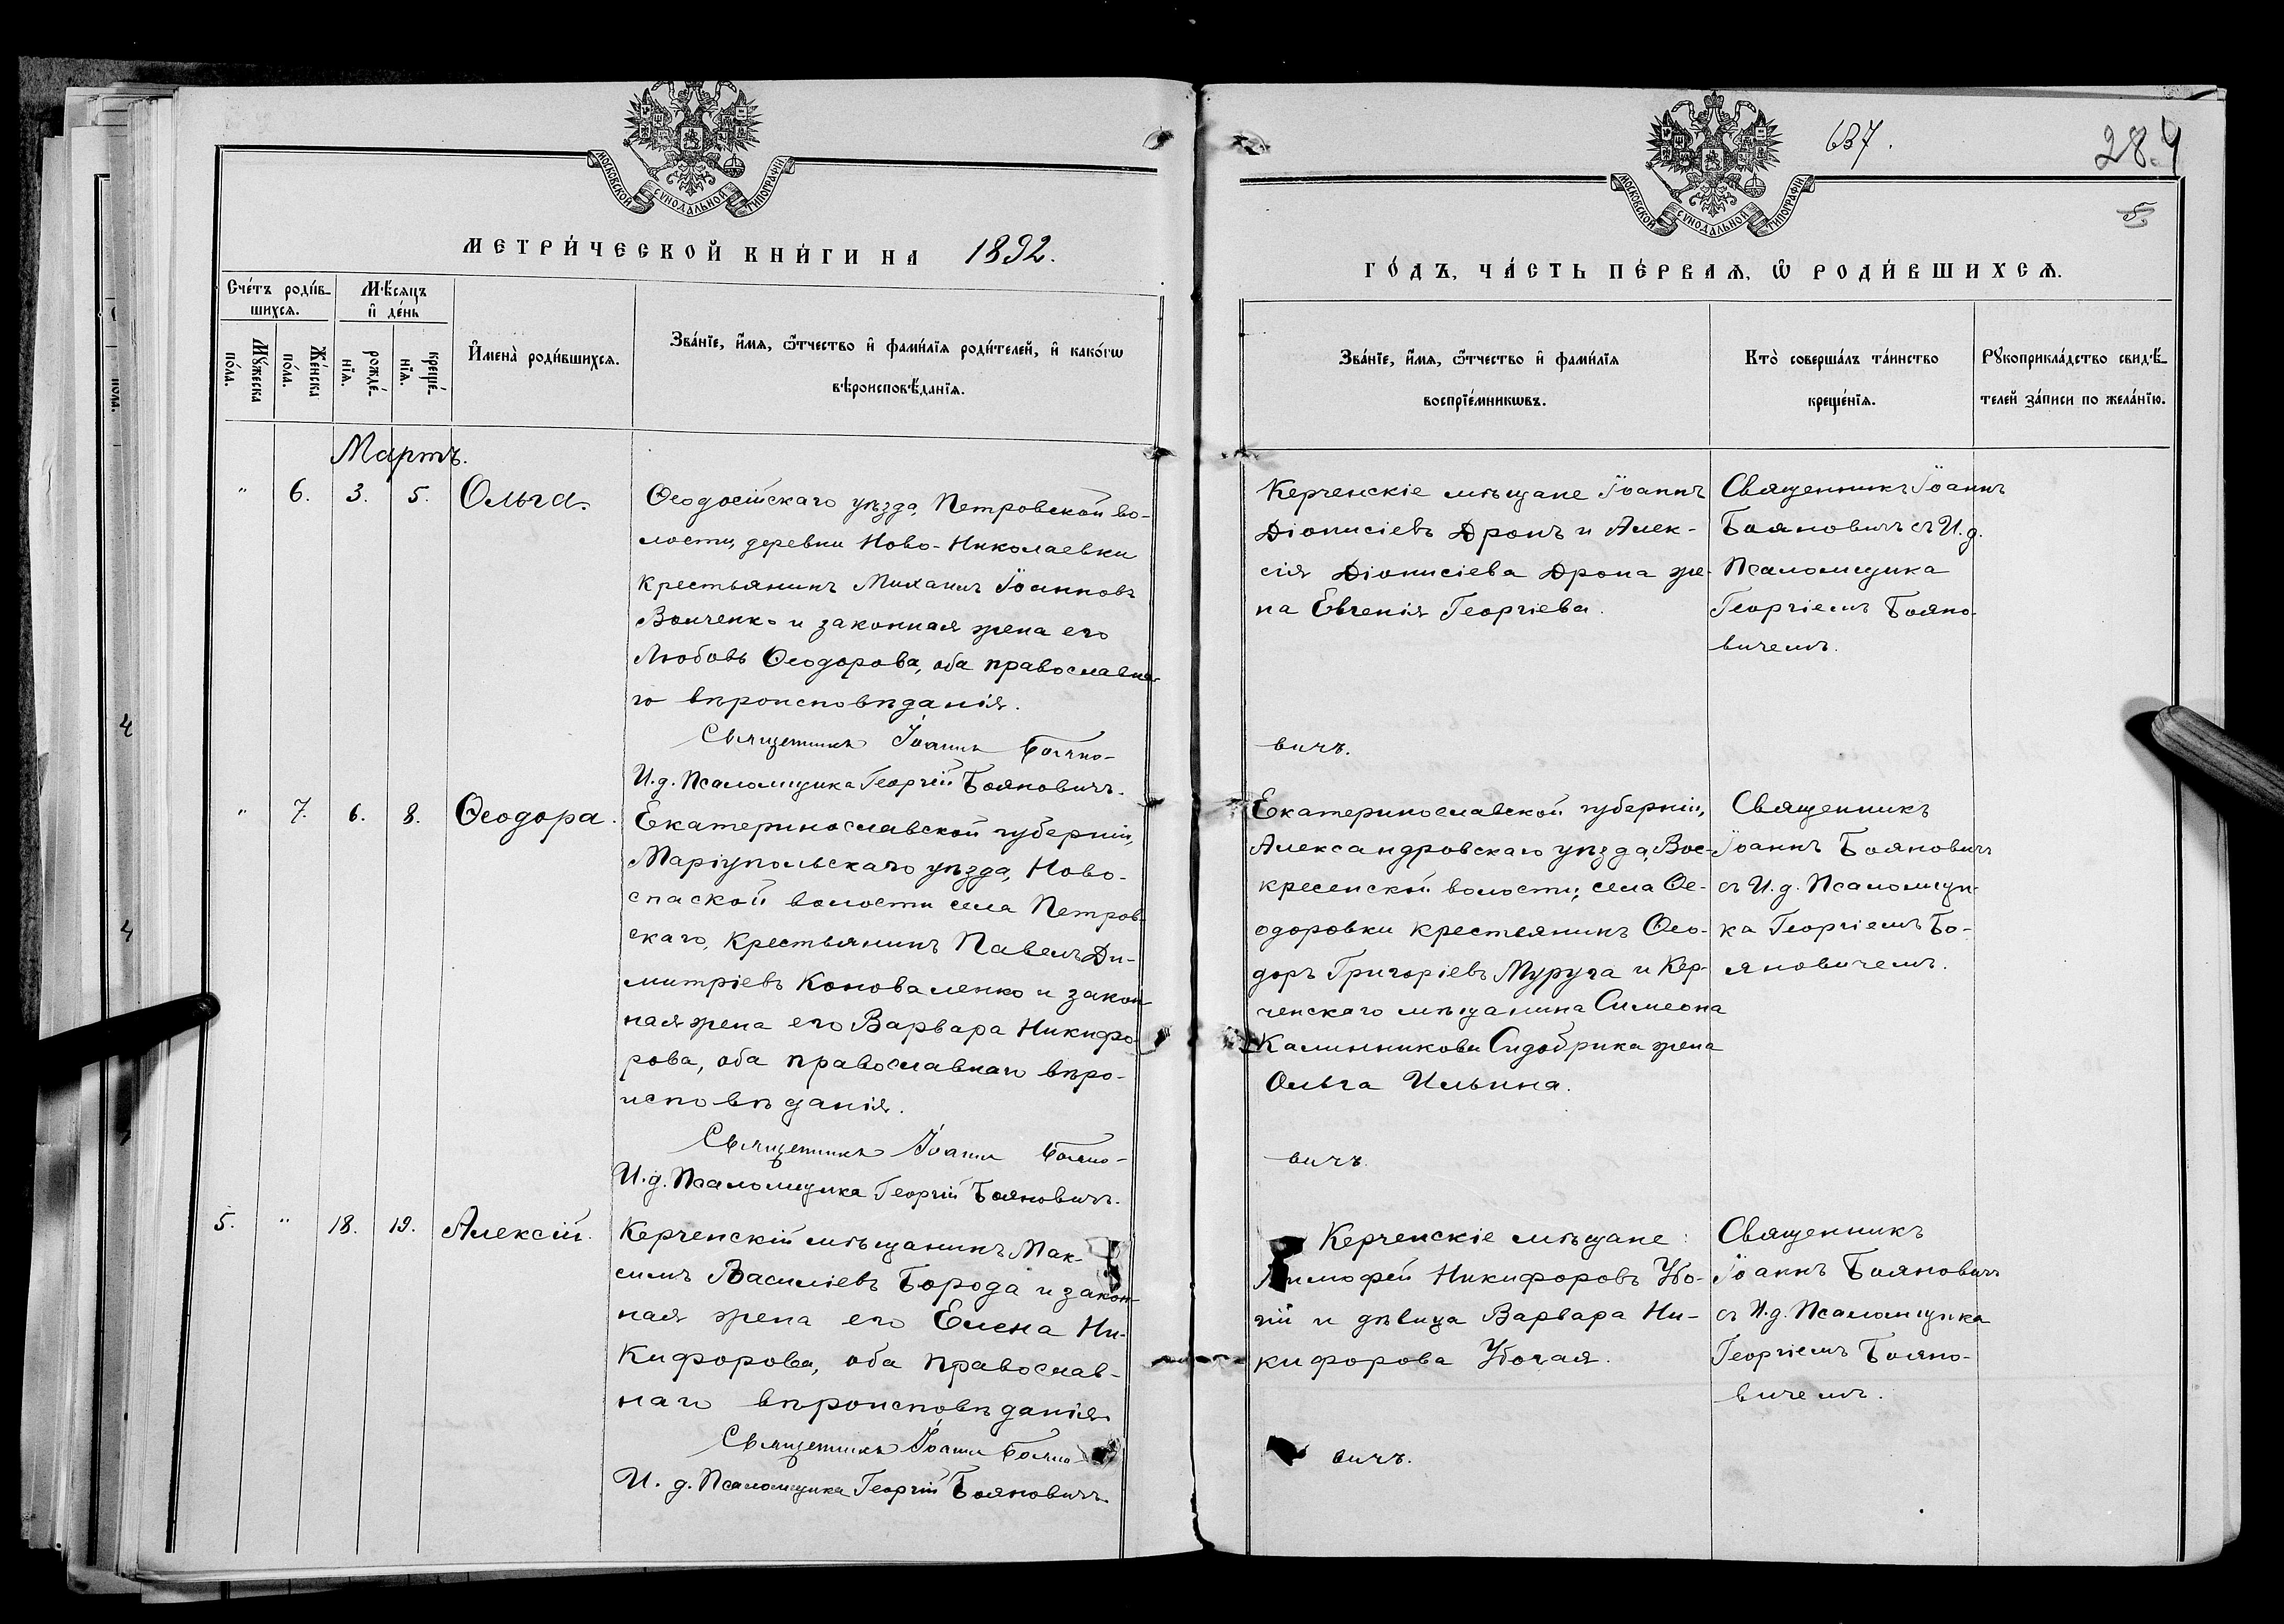 МОСКОВСКОЙ СУНОДАЛЬНОЙ ТИПОГРАФІИ
МЕТРИ́ЧЕСКОЙ КНИ́ГИ НА 1892.
Сче́тъ роди́в-
шихсѧ.
Мꙋ́жеска
по́ла.
Же́нска
по́ла.
Мѣ́сяцъ
и҆ де́нь
рожде́-
нїѧ.
креще́-
нїѧ.
И҆мена̀ роди́вшихсѧ.
Зва́нїе, и҆́мѧ, ѻ҆́тчество и҆ фами́лїѧ роди́телей, и҆ како́гѡ
вѣроисповѣ́данїѧ.
Мартъ.
" 6. 3. 5. Ольга.
Ѳеодосійскаго уѣзда, Петровской во-
лости, деревни Ново-Николаевки
крестьянинъ Михаилъ Іоанновъ
Вонченко и законная жена его
Любовь Ѳеодорова, оба православна-
го вѣроисповѣданія.
Священникъ Іоаннъ Бояно-
И.д. Псаломщика Георгій Бояновичъ.
" 7. 6. 8. Ѳеодора.
Екатеринославской губерніи,
Маріупольскаго уѣзда, Ново-
спаской волости села Петров-
скаго, крестьянинъ Павелъ Ди-
митріевъ Коноваленко и закон-
ная жена его Варвара Никифо-
рова, оба православнаго вѣро-
исповѣданія.
Священникъ Іоаннъ Бояно-
И.д. Псаломщика Георгій Бояновичъ.
5. " 18. 19. Алексій.
Керченскій мѣщанинъ Мак-
симъ Василіевъ Борода и закон-
ная жена его Елена Ни-
кифорова, оба православ-
наго вѣроисповѣданія
Священникъ Іоаннъ Бояно-
И. д. Псаломщика Георгій Бояновичъ.
637.
284
МОСКОВСКОЙ СУНОДАЛЬНОЙ ТИПОГРАФІИ
ГО́ДЪ, ЧА́СТЬ ПЕ́РВАѦ, Ѽ РОДИ́ВШИХСѦ.
Зва́нїе, и҆́мѧ, ѻ҆́тчество и҆ фами́лїѧ
воспрїе́мникѡвъ.
Кто̀ соверша́лъ та́инство
креще́нїѧ.
Рꙋкоприкла́дство свидѣ́-
телей за́писи по жела́нїю.
Керченскіе мѣщане Іоаннъ
Діонисіевъ Дронъ и Алек-
сія Діонисіева Дрона же-
на Евгенія Георгіева.
Священникъ Іоаннъ
Бояновичъ съ И.д.
Псаломщика
Георгіемъ Бояно-
вичемъ.
вичъ.
Екатеринославской губерніи,
Александровскаго уѣзда, Вос-
кресенской волости, села Ѳе-
одоровки крестьянинъ Ѳео-
доръ Григоріевъ Муруга и Кер-
ченскаго мѣщанина Симеона
Калинникова Сидобрика жена
Ольга Ильина.
Священникъ
Іоаннъ Бояновичъ
съ И.д. Псаломщи-
ка Георгіемъ Бо-
яновичемъ.
вичъ.
Керченскіе мѣщане:
Тимофей Никифоровъ Убо-
гій и дѣвица Варвара Ни-
кифорова Убогая.
Священникъ
Іоаннъ Бояновичъ
съ И.д. Псаломщика
Георгіемъ Бояно-
вичемъ.
вичъ.